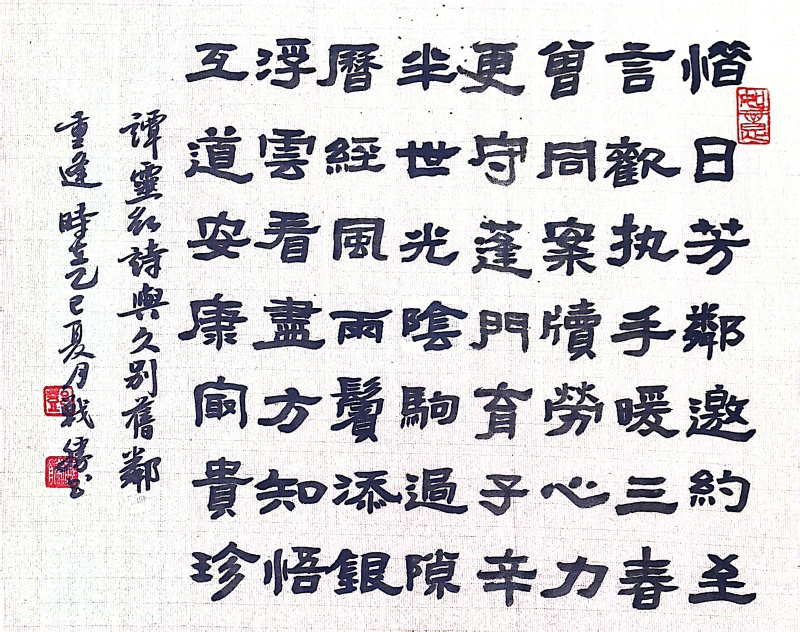 惜日芳鄰邀約至
言歡执手暖三春
曾同案牘勞心力
更守蓬門育子辛
半世光陰駒過隙
曆經風雨鬢添銀
浮雲看盡方知悟
互道安康最貴珍
譚靈紅詩與久別舊鄰
重逢時在乙巳夏月戰勝書